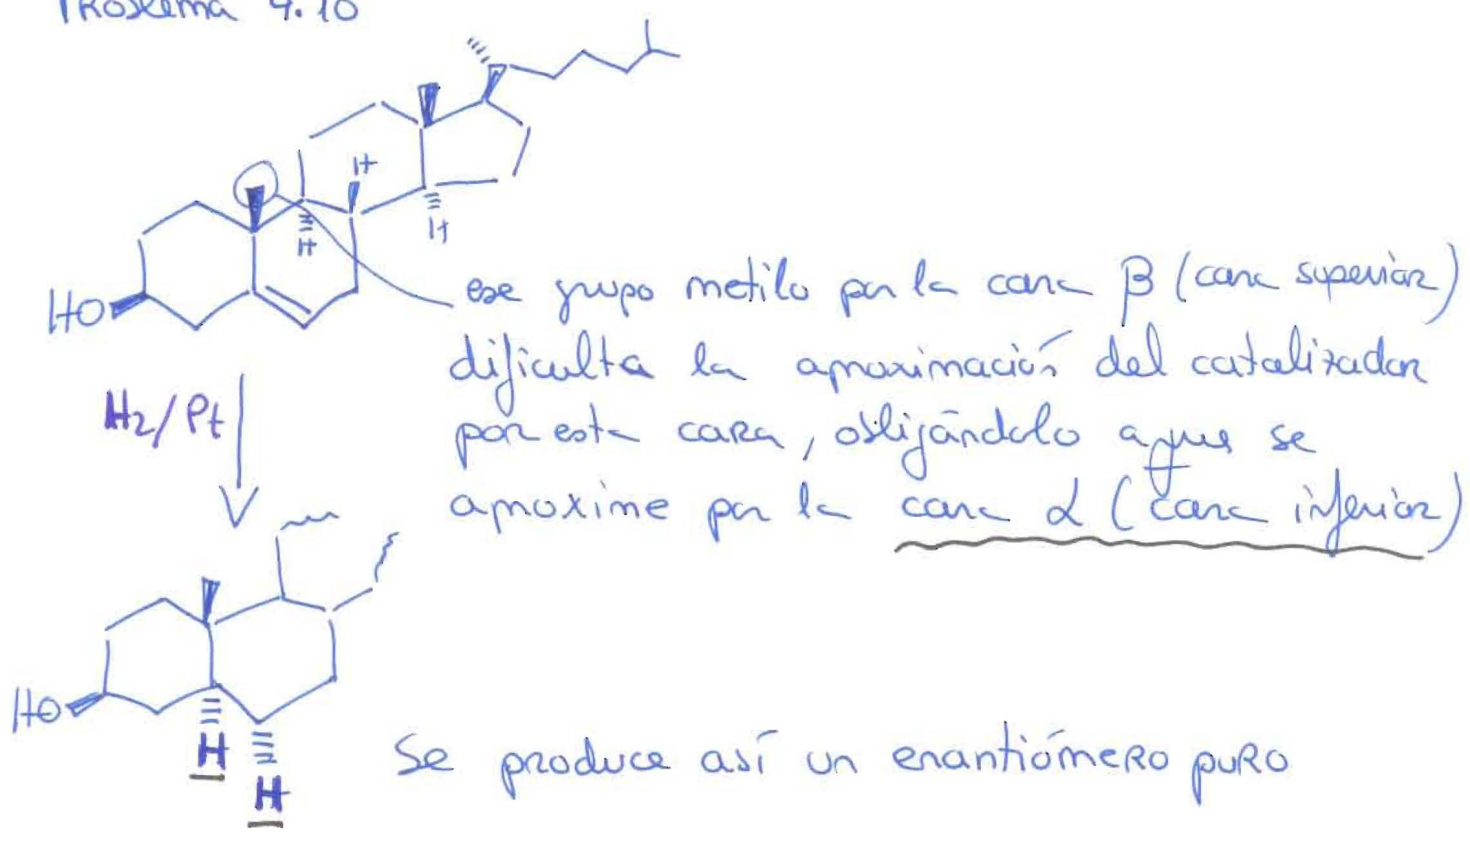 Problema 4.10
H
H
H
HO
ese grupo metilo por la cara β (cara superior)
dificulta la aproximación del catalizador
H₂/Pt
por esta cara, obligándolo a que se
aproxime por la cara α (cara inferior)
HO
H
H
Se produce así un enantiómero puro